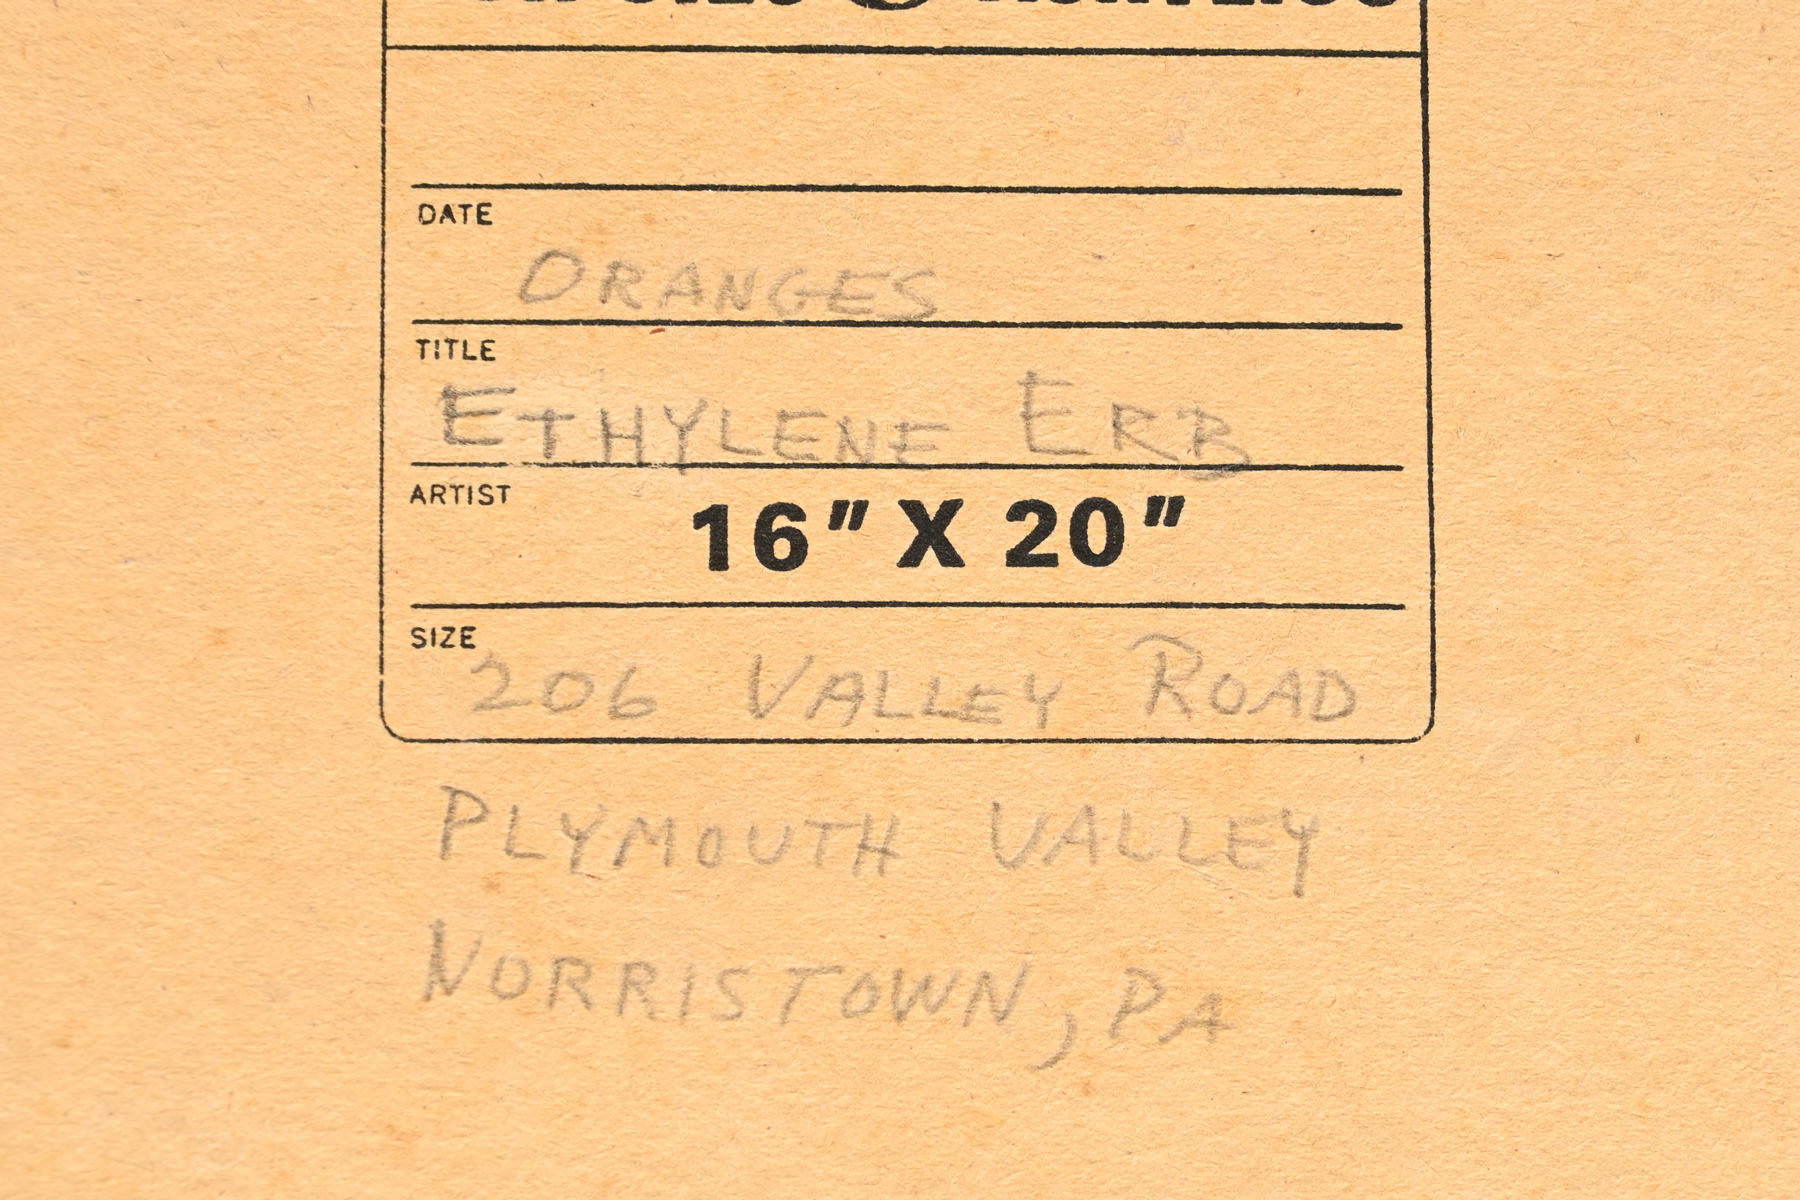 DATE
ORANGES
TITLE
ETHYLENE ERB
ARTIST
16" X 20"
SIZE
206 VALLEY ROAD
PLYMOUTH VALLEY
NORRISTOWN, PA